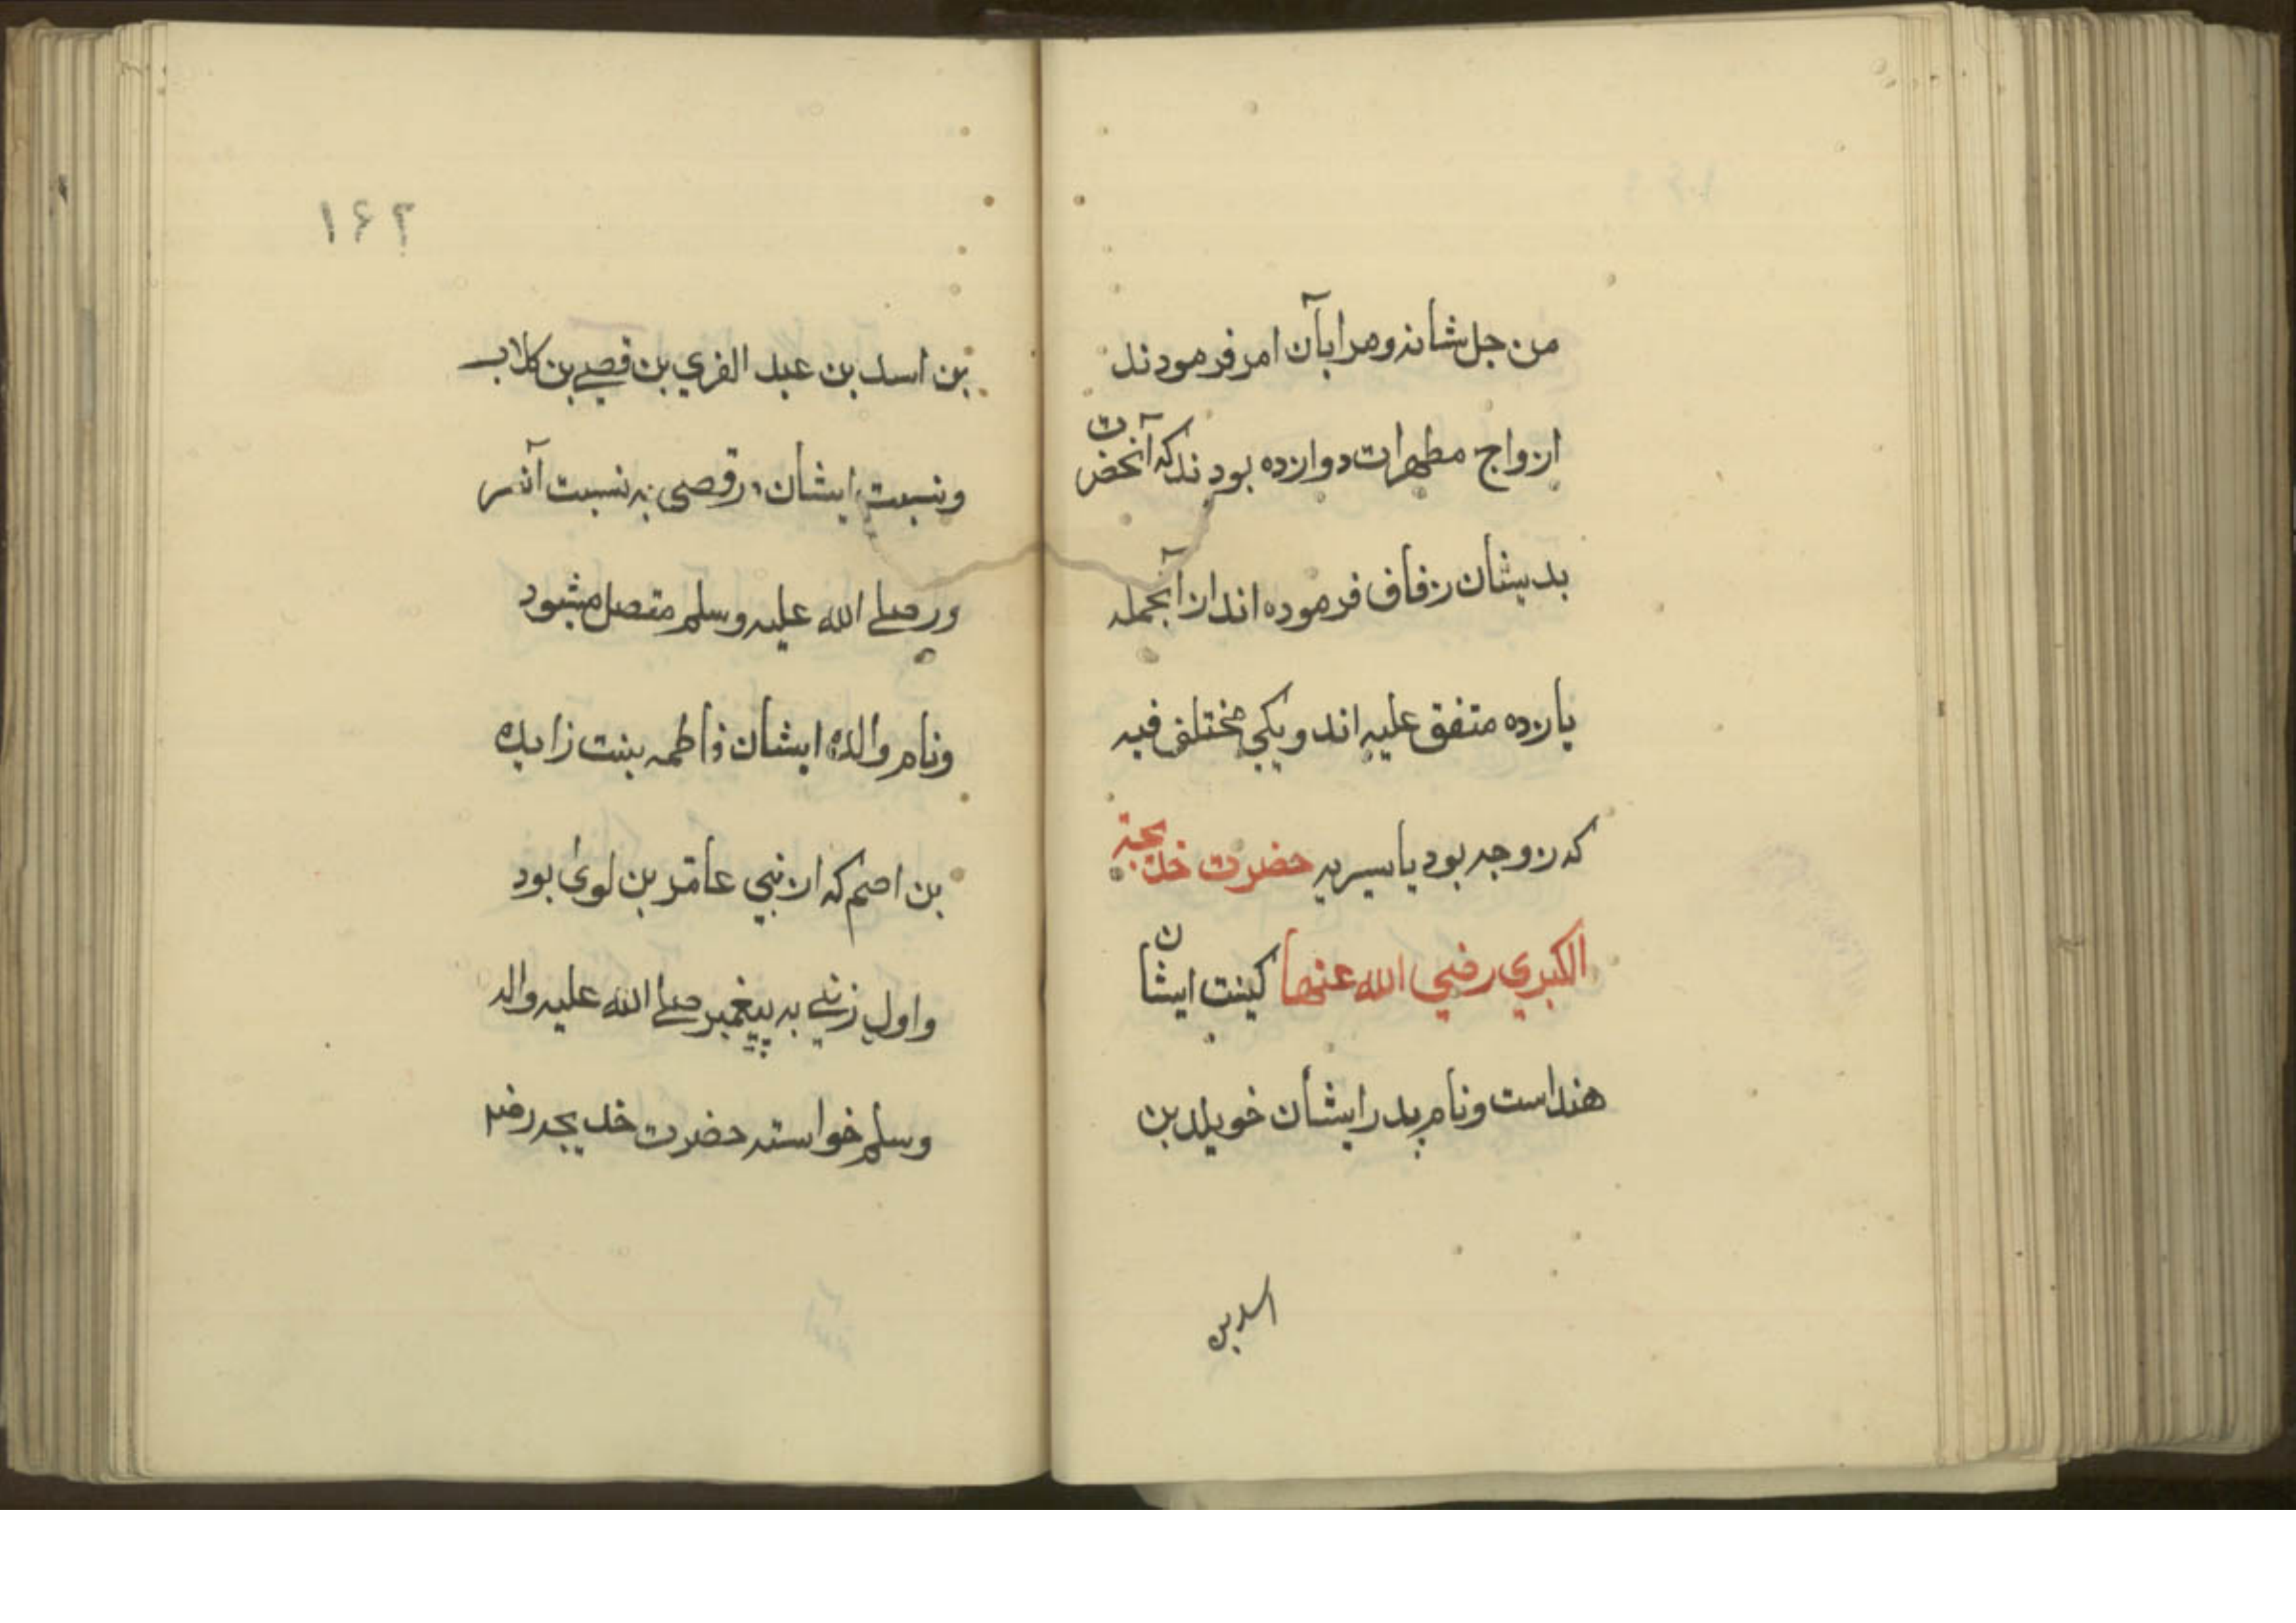 من جل شانه ومرا بآن امر فرمودند
ازواج مطهرات دوازده بودند که آنحضرت
بدیشان زفاف فرموده اند از آنجمله
یازده متفق علیه اند ویکی مختلف فیه
که زوجه بود یا سریه حضرت خدیجة
الکبري رضي الله عنها کنیت ایشان
هند است ونام پدر ایشان خویلد بن
اسد بن
۱۶۲
بن اسد بن عبد الغري بن قصے بن کلاب
ونسبت ایشان در قصی به نسبت آنسر
ور صلے الله علیه وسلم متصل میشود
ونام والده ایشان فاطمه بنت زایده
بن اصم که از بني عامر بن لوی بود
واول زنے به پیغمبر صلے الله علیه واله
وسلم خواسته حضرت خدیجه رضه